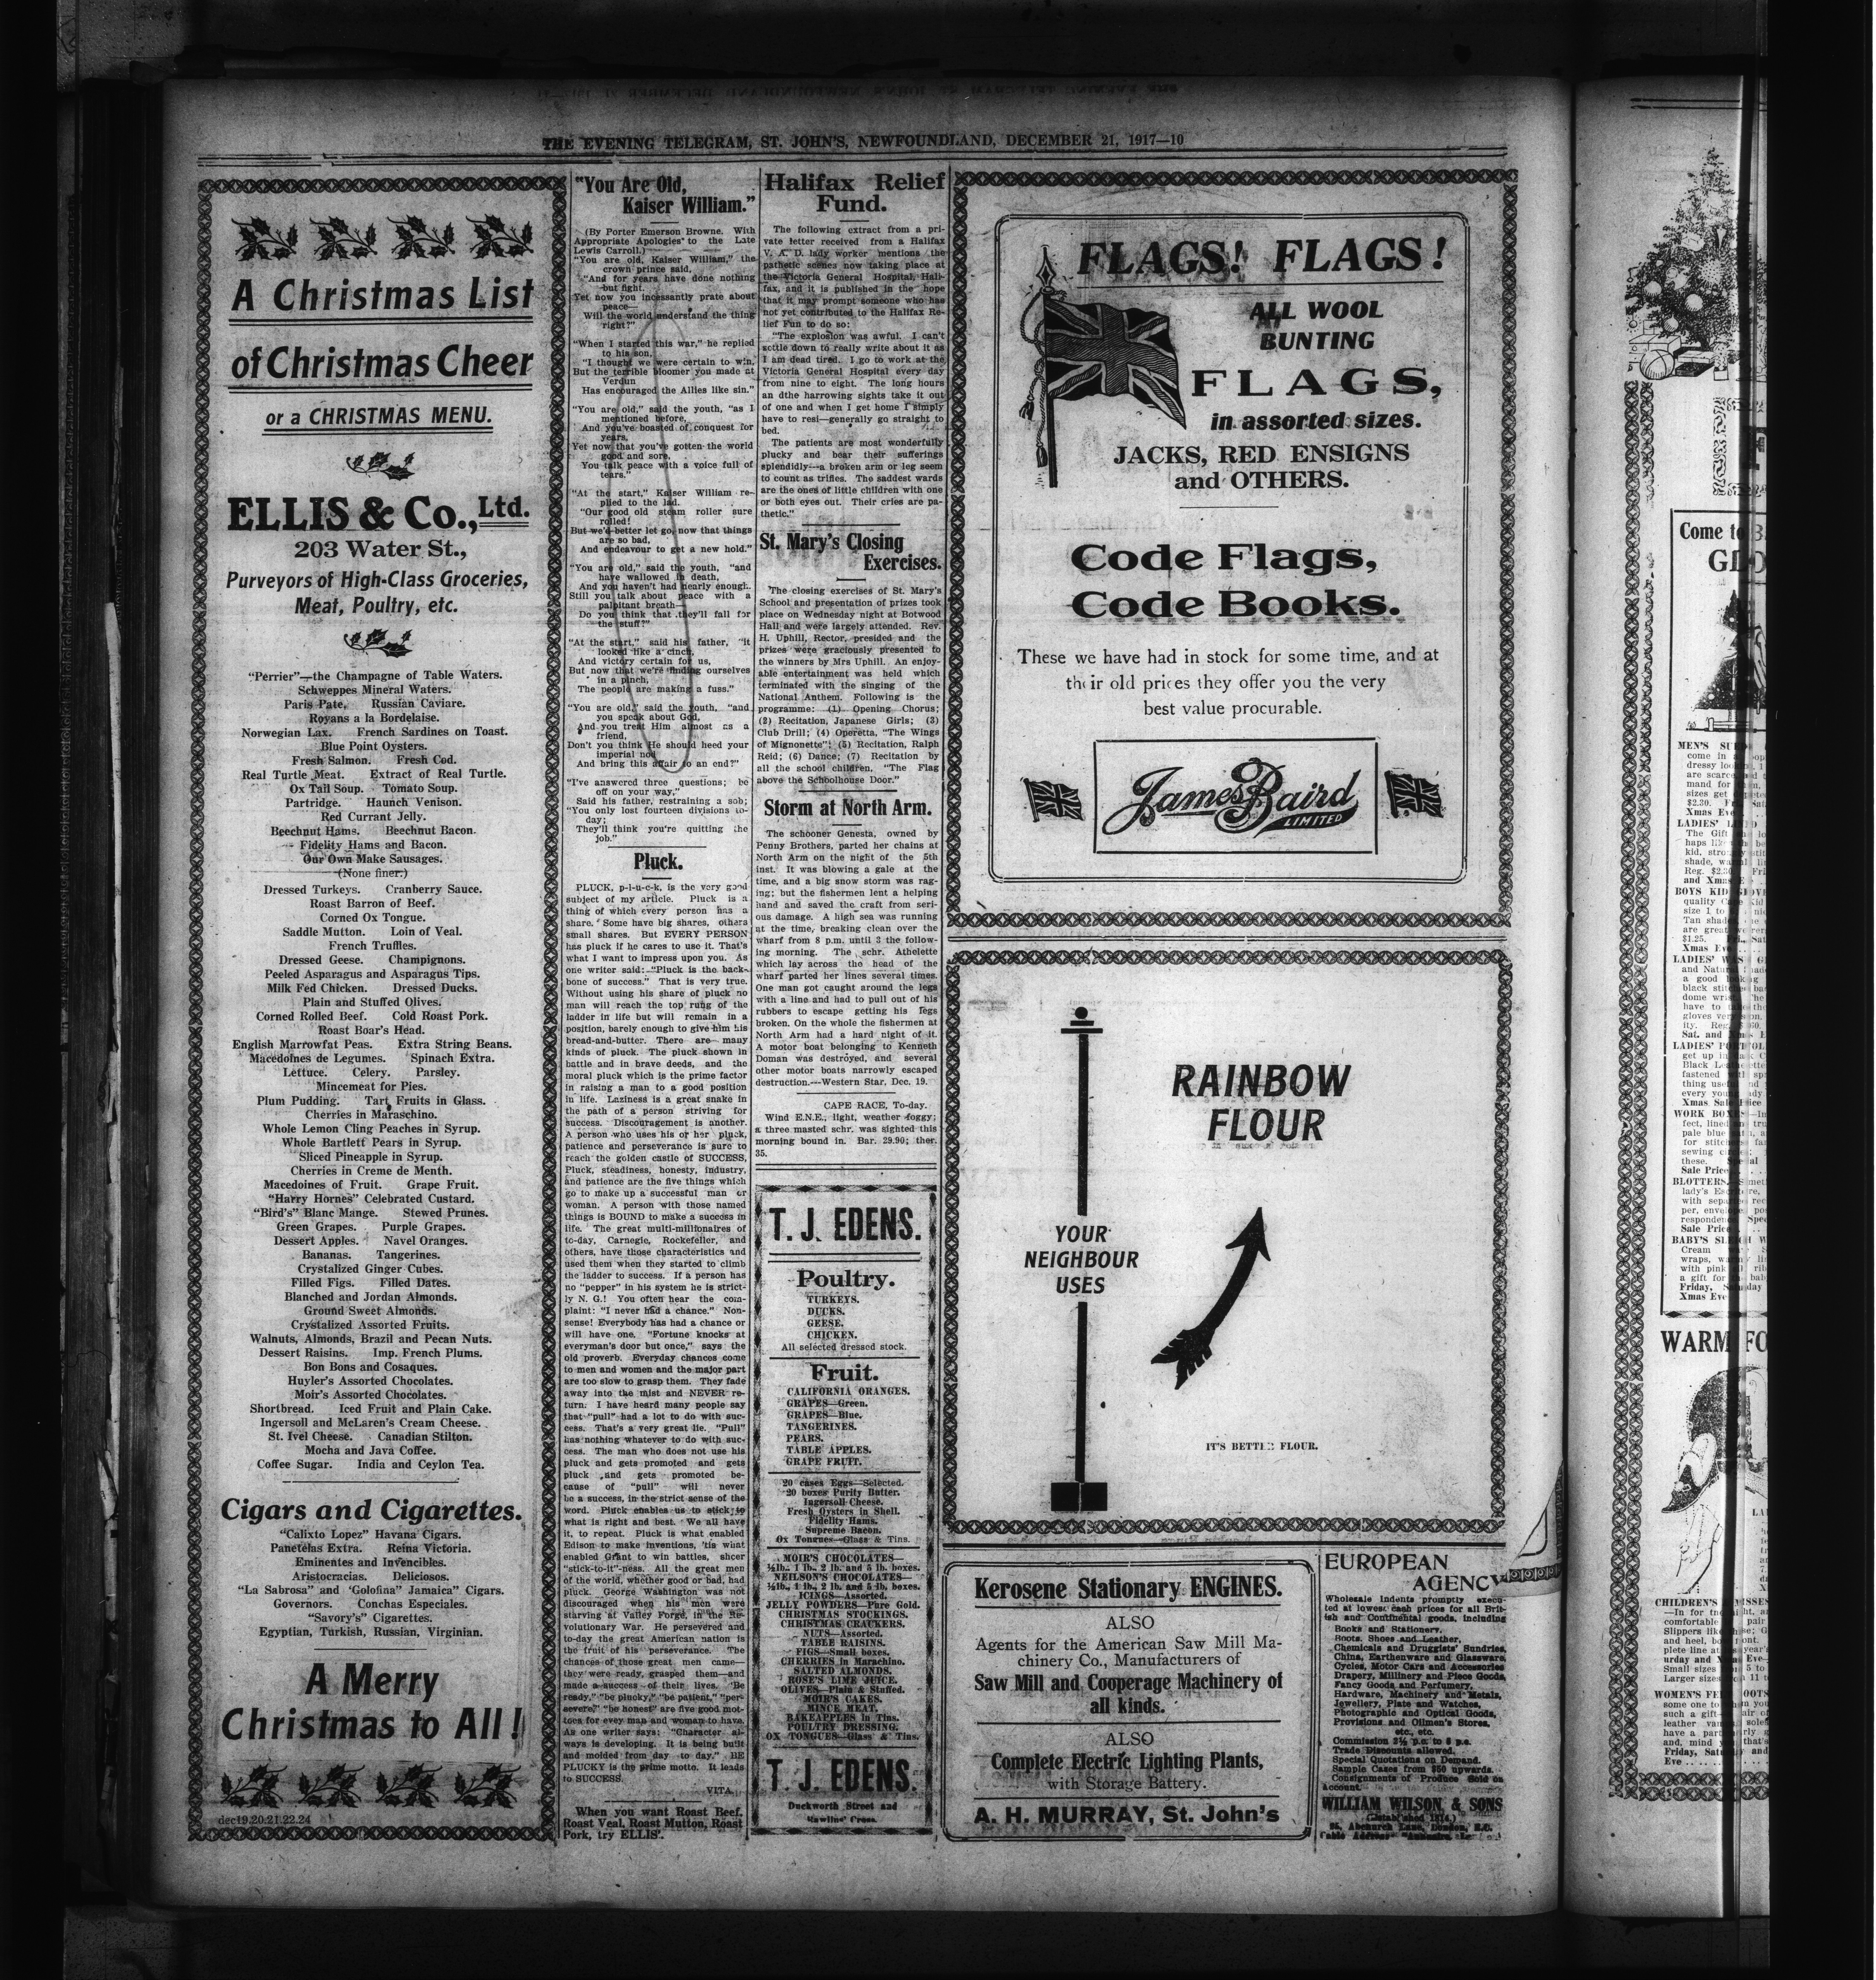 THE EVENING TELEGRAM, ST. JOHN'S, NEWFOUNDLAND, DECEMBER 21, 1917—10
A Christmas List
of Christmas Cheer
or a CHRISTMAS MENU.
ELLIS & Co., Ltd.
203 Water St.,
Purveyors of High-Class Groceries,
Meat, Poultry, etc.
"Perrier"—the Champagne of Table Waters.
Schweppes Mineral Waters.
Paris Pate, Russian Caviare.
Royans a la Bordelaise.
Norwegian Lax. French Sardines on Toast.
Blue Point Oysters.
Fresh Salmon. Fresh Cod.
Real Turtle Meat. Extract of Real Turtle.
Ox Tail Soup. Tomato Soup.
Partridge. Haunch Venison.
Red Currant Jelly.
Beechnut Hams. Beechnut Bacon.
Fidelity Hams and Bacon.
Our Own Make Sausages.
(None finer.)
Dressed Turkeys. Cranberry Sauce.
Roast Barron of Beef.
Corned Ox Tongue.
Saddle Mutton. Loin of Veal.
French Truffles.
Dressed Geese. Champignons.
Peeled Asparagus and Asparagus Tips.
Milk Fed Chicken. Dressed Ducks.
Plain and Stuffed Olives.
Corned Rolled Beef. Cold Roast Pork.
Roast Boar's Head.
English Marrowfat Peas. Extra String Beans.
Macedoines de Legumes. Spinach Extra.
Lettuce. Celery. Parsley.
Mincemeat for Pies.
Plum Pudding. Tart Fruits in Glass.
Cherries in Maraschino.
Whole Lemon Cling Peaches in Syrup.
Whole Bartlett Pears in Syrup.
Sliced Pineapple in Syrup.
Cherries in Creme de Menth.
Macedoines of Fruit. Grape Fruit.
"Harry Hornes" Celebrated Custard.
"Bird's" Blanc Mange. Stewed Prunes.
Green Grapes. Purple Grapes.
Dessert Apples. Navel Oranges.
Bananas. Tangerines.
Crystalized Ginger Cubes.
Filled Figs. Filled Dates.
Blanched and Jordan Almonds.
Ground Sweet Almonds.
Crystalized Assorted Fruits.
Walnuts, Almonds, Brazil and Pecan Nuts.
Dessert Raisins. Imp. French Plums.
Bon Bons and Cosaques.
Huyler's Assorted Chocolates.
Moir's Assorted Chocolates.
Shortbread. Iced Fruit and Plain Cake.
Ingersoll and McLaren's Cream Cheese.
St. Ivel Cheese. Canadian Stilton.
Mocha and Java Coffee.
Coffee Sugar. India and Ceylon Tea.
Cigars and Cigarettes.
"Calixto Lopez" Havana Cigars.
Panetelas Extra. Reina Victoria.
Eminentes and Invencibles.
Aristocracias. Deliciosos.
"La Sabrosa" and 'Golofina" Jamaica" Cigars.
Governors. Conchas Especiales.
"Savory's" Cigarettes.
Egyptian, Turkish, Russian, Virginian.
A Merry
Christmas to All!
dec19,20,21,22,24
"You Are Old,
Kaiser William."
(By Porter Emerson Browne. With
Appropriate Apologies to the Late
Lewis Carroll.)
"You are old, Kaiser William," the
crown prince said,
"And for years have done nothing
but fight.
Yet now you incessantly prate about
peace—
Will the world understand the thing
right?"
"When I started this war," he replied
to his son,
"I thought we were certain to win,
But the terrible bloomer you made at
Verdun
Has encouraged the Allies like sin."
"You are old," said the youth, "as I
mentioned before,
And you've boasted of conquest for
years,
Yet now that you've gotten the world
good and sore,
You talk peace with a voice full of
tears."
"At the start," Kaiser William re-
plied to the lad.
"Our good old steam roller sure
rolled!
But we'd better let go, now that things
are so bad,
And endeavour to get a new hold."
"You are old," said the youth, "and
have wallowed in death,
And you haven't had nearly enough.
Still you talk about peace with a
palpitant breath—
Do you think that they'll fall for
the stuff?"
"At the start," said his father, "it
looked like a cinch,
And victory certain for us,
But now that we're finding ourselves
in a pinch,
The people are making a fuss."
"You are old," said the youth, "and
you speak about God,
And you treat Him almost as a
friend,
Don't you think He should heed your
imperial nod
And bring this affair to an end?"
"I've answered three questions; be
off on your way,"
Said his father, restraining a sob;
"You only lost fourteen divisions to-
day;
They'll think you're quitting the
job."
Pluck.
PLUCK, p-l-u-c-k, is the very good
subject of my article. Pluck is a
thing of which every person has a
share. Some have big shares, others
small shares. But EVERY PERSON
has pluck if he cares to use it. That's
what I want to impress upon you. As
one writer said: "Pluck is the back-
bone of success." That is very true.
Without using his share of pluck no
man will reach the top rung of the
ladder in life but will remain in a
position, barely enough to give him his
bread-and-butter. There are many
kinds of pluck. The pluck shown in
battle and in brave deeds, and the
moral pluck which is the prime factor
in raising a man to a good position
in life. Laziness is a great snake in
the path of a person striving for
success. Discouragement is another.
A person who uses his or her pluck,
patience and perseverance is sure to
reach the golden castle of SUCCESS.
Pluck, steadiness, honesty, industry,
and patience are the five things which
go to make up a successful man or
woman. A person with those named
things is BOUND to make a success in
life. The great multi-millionaires of
to-day, Carnegie, Rockefeller, and
others, have those characteristics and
used them when they started to climb
the ladder to success. If a person has
no "pepper" in his system he is strict-
ly N. G.! You often hear the com-
plaint: "I never had a chance." Non-
sense! Everybody has had a chance or
will have one. "Fortune knocks at
everyman's door but once," says the
old proverb. Everyday chances come
to men and women and the major part
are too slow to grasp them. They fade
away into the mist and NEVER re-
turn. I have heard many people say
that "pull" had a lot to do with suc-
cess. That's a very great lie. "Pull"
has nothing whatever to do with suc-
cess. The man who does not use his
pluck and gets promoted and gets
pluck and gets promoted be-
cause of "pull" will never
be a success, in the strict sense of the
word. Pluck enables us to stick to
what is right and best. We all have
it, to repeat. Pluck is what enabled
Edison to make inventions, 'tis what
enabled Grant to win battles, sheer
"stick-to-it"-ness. All the great men
of the world, whether good or bad, had
pluck. George Washington was not
discouraged when his men were
starving at Valley Forge, in the Re-
volutionary War. He persevered and
to-day the great American nation is
the fruit of his perseverance. The
chances of those great men came—
they were ready, grasped them—and
made a success of their lives. 'Be
ready," "be plucky," "be patient," "per-
severe," "be honest" are five good mot-
toes for evey man and woman to have.
As one writer says: "Character al-
ways is developing. It is being built
and molded from day to day." BE
PLUCKY is the prime motto. It leads
to SUCCESS.
VITA.
When you want Roast Beef,
Roast Veal, Roast Mutton, Roast
Pork, try ELLIS'.
Halifax Relief
Fund.
The following extract from a pri-
vate letter received from a Halifax
V. A. D. lady worker mentions the
pathetic scenes now taking place at
the Victoria General Hospital, Hali-
fax, and it is published in the hope
that it may prompt someone who has
not yet contributed to the Halifax Re-
lief Fun to do so:
"The explosion was awful. I can't
settle down to really write about it as
I am dead tired. I go to work at the
Victoria General Hospital every day
from nine to eight. The long hours
an dthe harrowing sights take it out
of one and when I get home I simply
have to rest—generally go straight to
bed.
The patients are most wonderfully
plucky and bear their sufferings
splendidly—a broken arm or leg seem
to count as trifles. The saddest wards
are the ones of little children with one
or both eyes out. Their cries are pa-
thetic."
St. Mary's Closing
Exercises.
The closing exercises of St. Mary's
School and presentation of prizes took
place on Wednesday night at Botwood
Hall and were largely attended. Rev.
H. Uphill, Rector, presided and the
prizes were graciously presented to
the winners by Mrs Uphill. An enjoy-
able entertainment was held which
terminated with the singing of the
National Anthem. Following is the
programme: (1) Opening Chorus;
(2) Recitation, Japanese Girls; (3)
Club Drill; (4) Operetta, "The Wings
of Mignonette"; (5) Recitation, Ralph
Reid; (6) Dance; (7) Recitation by
all the school children, "The Flag
above the Schoolhouse Door."
Storm at North Arm.
The schooner Genesta, owned by
Penny Brothers, parted her chains at
North Arm on the night of the 5th
inst. It was blowing a gale at the
time, and a big snow storm was rag-
ing; but the fishermen lent a helping
hand and saved the craft from seri-
ous damage. A high sea was running
at the time, breaking clean over the
wharf from 8 p.m. until 3 the follow-
ing morning. The schr. Athelette
which lay across the head of the
wharf parted her lines several times.
One man got caught around the legs
with a line and had to pull out of his
rubbers to escape getting his legs
broken. On the whole the fishermen at
North Arm had a hard night of it.
A motor boat belonging to Kenneth
Doman was destroyed, and several
other motor boats narrowly escaped
destruction.—Western Star, Dec. 19.
CAPE RACE, To-day.
Wind E.N.E., light, weather foggy;
a three masted schr. was sighted this
morning bound in. Bar. 29.90; ther.
35.
T. J. EDENS.
Poultry.
TURKEYS.
DUCKS.
GEESE.
CHICKEN.
All selected dressed stock.
Fruit.
CALIFORNIA ORANGES.
GRAPES—Green.
GRAPES—Blue.
TANGERINES.
PEARS.
TABLE APPLES.
GRAPE FRUIT.
20 cases Eggs—Selected.
20 boxes Purity Butter.
Ingersoll Cheese.
Fresh Oysters in Shell.
Fidelity Hams.
Supreme Bacon.
Ox Tongues—Glass & Tins.
MOIR'S CHOCOLATES—
½lb., 1 lb., 2 lb. and 5 lb. boxes.
NEILSON'S CHOCOLATES—
½lb., 1 lb., 2 lb. and 5 lb. boxes.
ICINGS—Assorted.
JELLY POWDERS—Pure Gold.
CHRISTMAS STOCKINGS.
CHRISTMAS CRACKERS.
NUTS—Assorted.
TABLE RAISINS.
FIGS—Small boxes.
CHERRIES in Marachino.
SALTED ALMONDS.
ROSE'S LIME JUICE.
OLIVES—Plain & Stuffed.
MOIR'S CAKES.
MINCE MEAT.
BAKEAPPLES in Tins.
POULTRY DRESSING.
OX TONGUES—Glass & Tins.
T. J. EDENS.
Duckworth Street and
Rawlins' Cross.
FLAGS! FLAGS!
ALL WOOL
BUNTING
FLAGS,
in assorted sizes.
JACKS, RED ENSIGNS
and OTHERS.
Code Flags,
Code Books.
These we have had in stock for some time, and at
their old prices they offer you the very
best value procurable.
James Baird
LIMITED
RAINBOW
FLOUR
YOUR
NEIGHBOUR
USES
IT'S BETTER FLOUR.
Kerosene Stationary ENGINES.
ALSO
Agents for the American Saw Mill Ma-
chinery Co., Manufacturers of
Saw Mill and Cooperage Machinery of
all kinds.
ALSO
Complete Electric Lighting Plants,
with Storage Battery.
A. H. MURRAY, St. John's
EUROPEAN
AGENCY
Wholesale Indents promptly execu-
ted at lowest cash prices for all Brit-
ish and Continental goods, including
Books and Stationery,
Boots, Shoes and Leather,
Chemicals and Druggists' Sundries,
China, Earthenware and Glassware,
Cycles, Motor Cars and Accessories
Drapery, Millinery and Piece Goods,
Fancy Goods and Perfumery,
Hardware, Machinery and Metals,
Jewellery, Plate and Watches,
Photographic and Optical Goods,
Provisions and Oilmen's Stores,
etc., etc.
Commission 2½ p.c. to 5 p.c.
Trade Discounts allowed.
Special Quotations on Demand.
Sample Cases from $50 upwards.
Consignments of Produce Sold on
Account.
WILLIAM WILSON & SONS
(Established 1814.)
25, Abchurch Lane, London, E.C.
Cable Address
Come to
MEN'S
LADIES'
BOYS KID
LADIES'
WORK BOXES
BLOTTERS.
BABY'S
WARM
CHILDREN'S
WOMEN'S